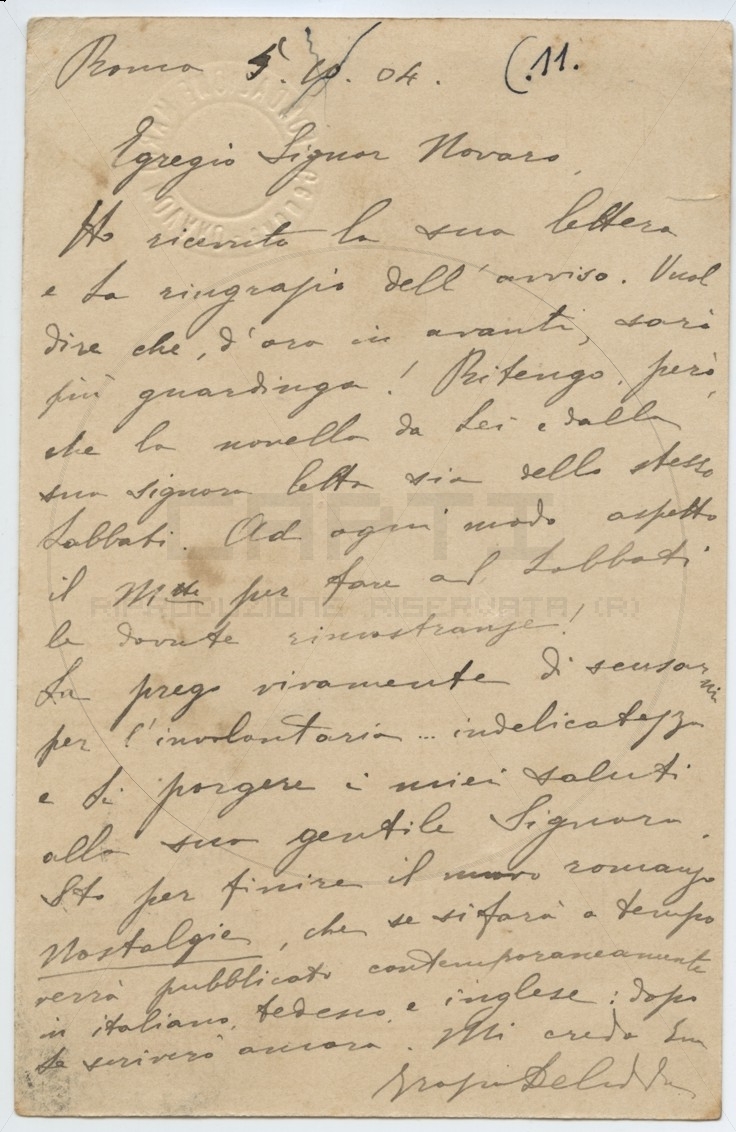 Roma 5. 10. 04. (.11.
Egregio Signor Novaro,
Ho ricevuto la sua lettera
e La ringrazio dell'avviso. Vuol
dire che, d'ora in avanti, sarò
più guardinga! Ritengo, però,
che la novella da Lei e dalla
sua signora letta sia dello stesso
Sabbati. Ad ogni modo aspetto
il Mtte per fare al Sabbati
le dovute rimostranze!
La prego vivamente di scusarmi
per l'involontaria ... indelicatezza
e di porgere i miei saluti
alla sua gentile Signora.
Sto per finire il nuovo romanzo
Nostalgie, che se si farà a tempo
verrà pubblicato contemporaneamente
in italiano, tedesco e inglese: dopo
Le scriverò ancora. Mi creda Sua
Grazia Deledda
CARTI
RIPRODUZIONE RISERVATA (R)